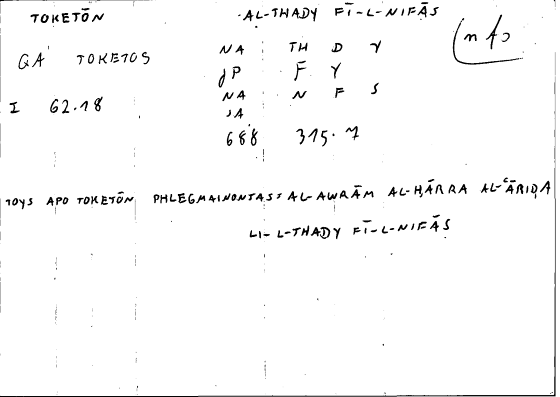 TOKETŌN AL-THADY FĪ-L-NIFĀS
QA TOKETOS NA TH D Y
JP F Y
I 62.18 NA N F S
JA
688 315.7
TOYS APO TOKETŌN PHLEGMAINONTAS: AL-AWRĀM AL-ḤĀRRA AL-ʿĀRIḌA
LI-L-THADY FĪ-L-NIFĀS